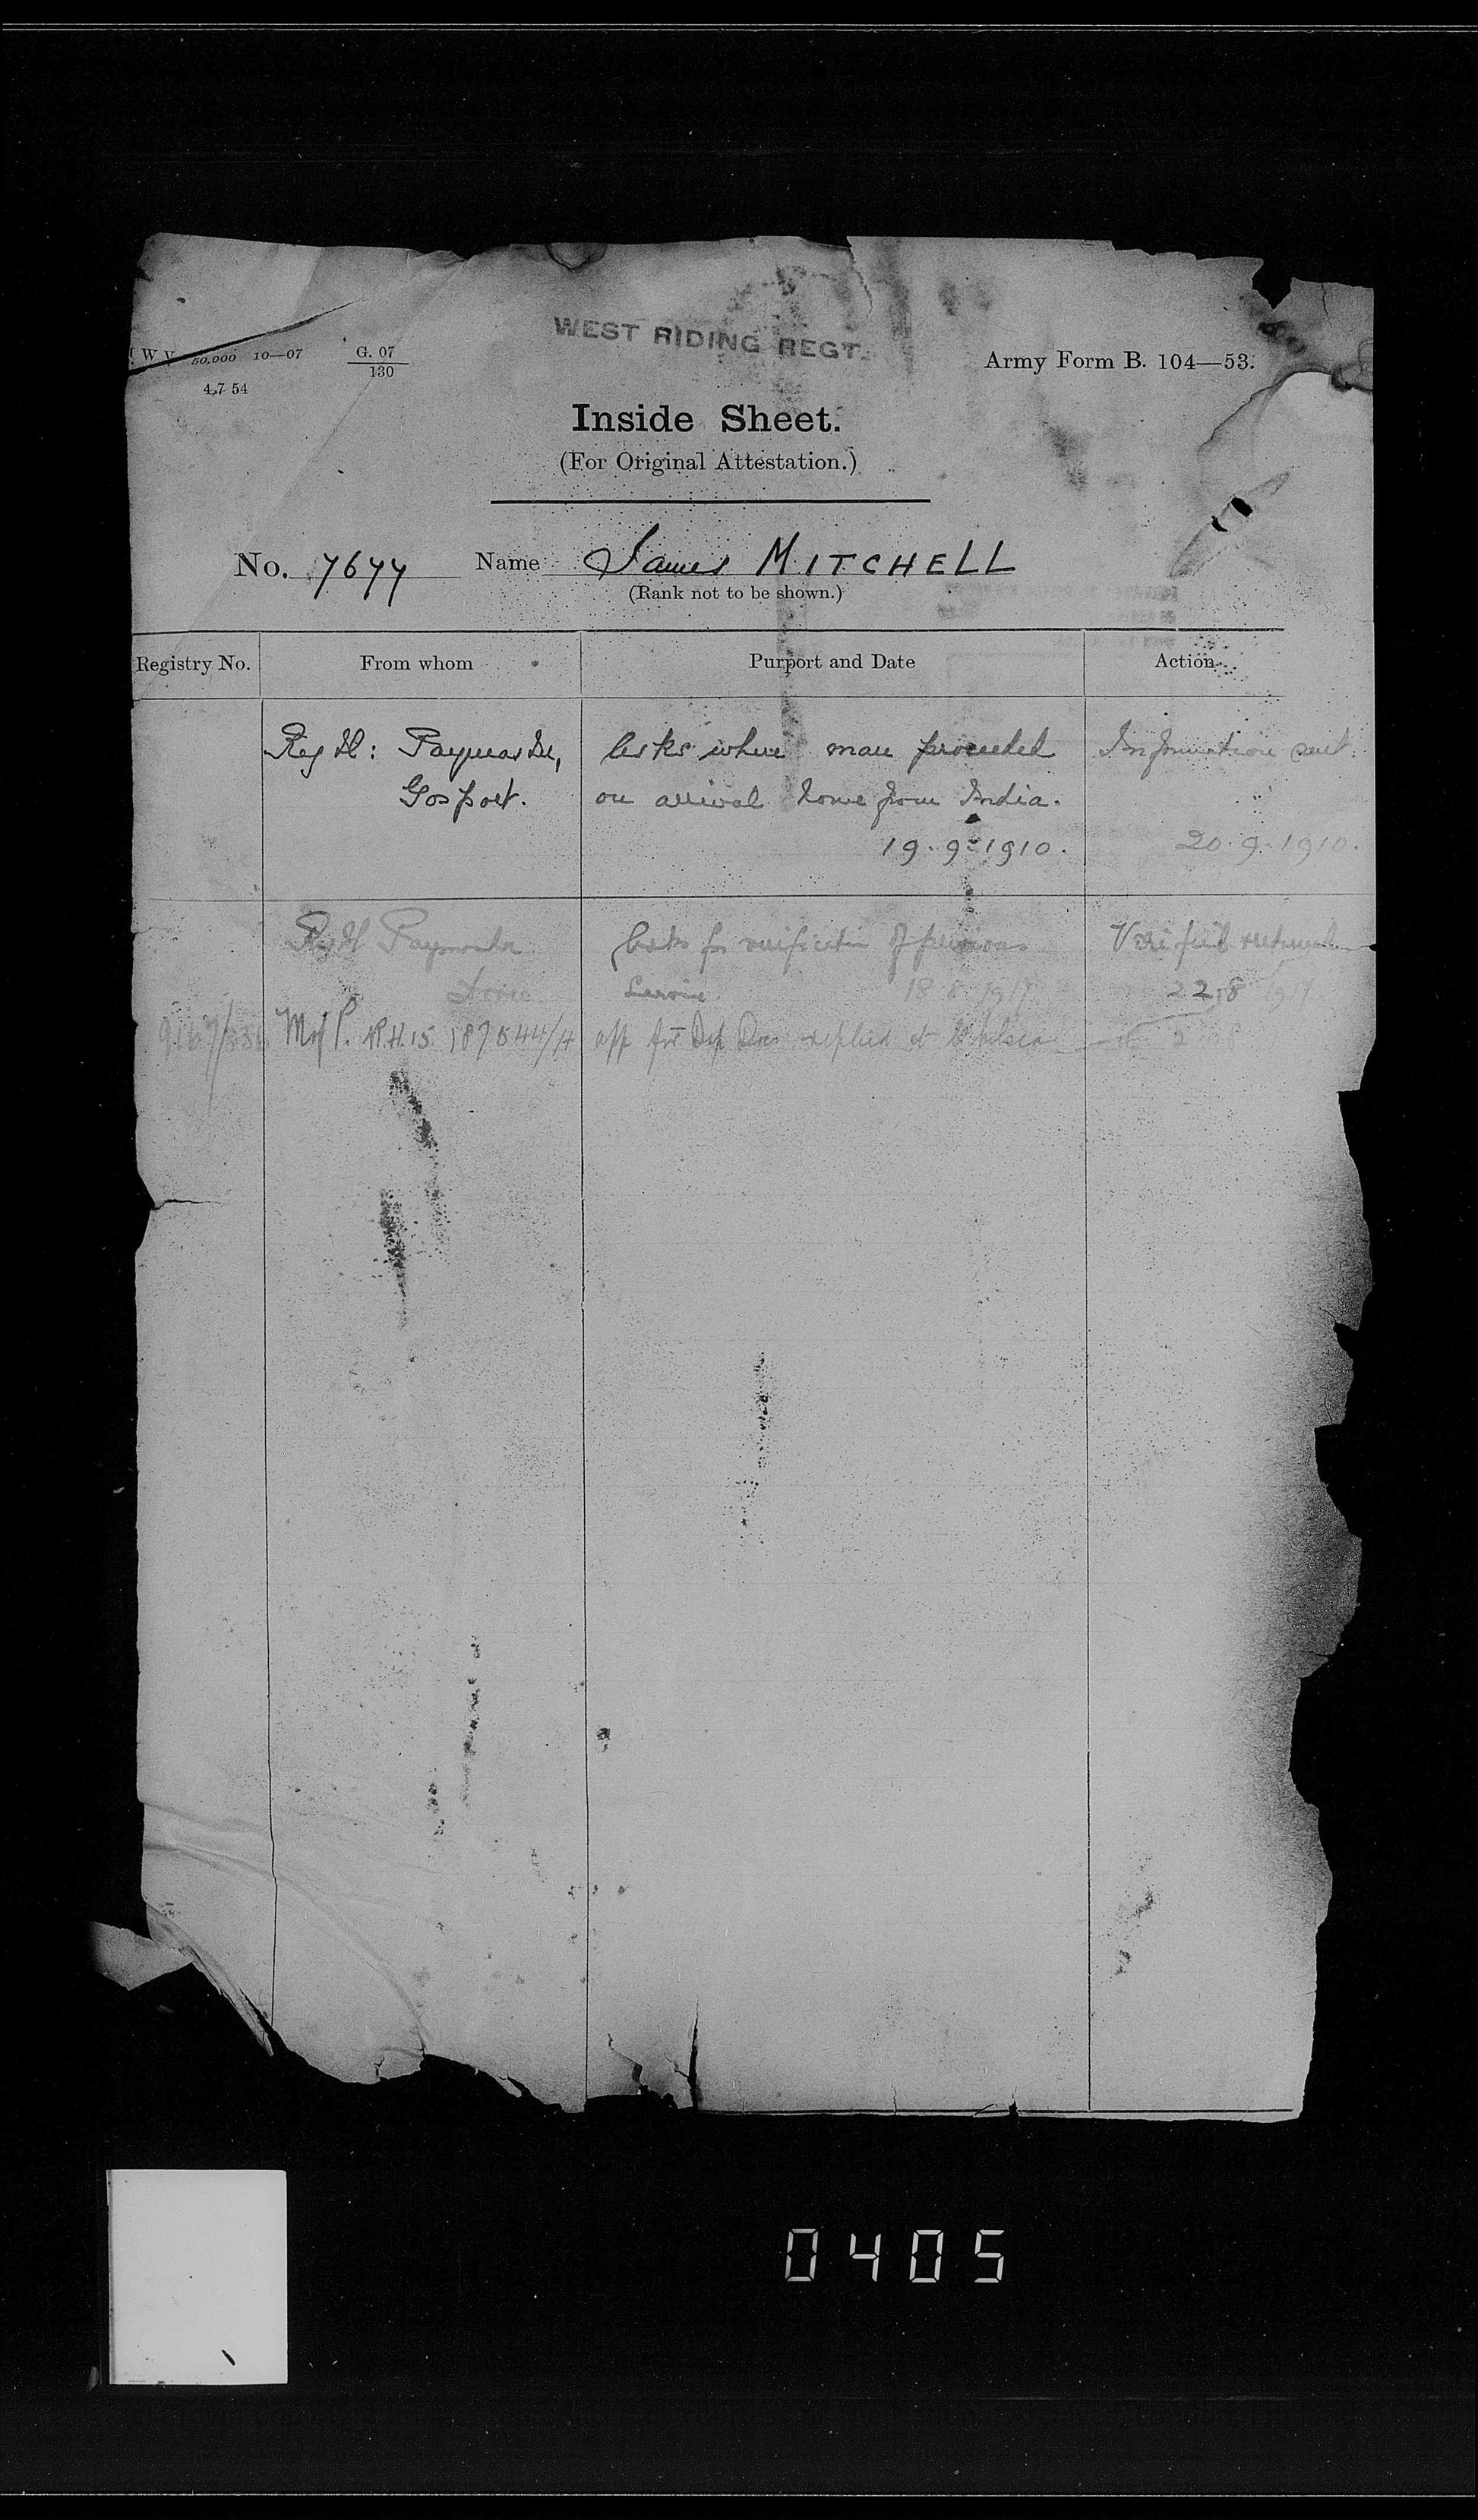 WEST RIDING REGT.
W V 50,000 10—07 G. 07
130
4,7 54
Army Form B. 104—53.
Inside Sheet.
(For Original Attestation.)
No. 7677 Name James MITCHELL
(Rank not to be shown.)
Registry No. From whom Purport and Date Action
Regtl: Paymaster, Asks where man proceeded Information sent.
Gosport. on arrival home from India.
19.9.1910. 20.9.1910.
Regtl Paymaster Asks for verification of previous Verified returned
Service. 18 8 1917 22.8 1917
M of P. app for replied Chelsea
0405